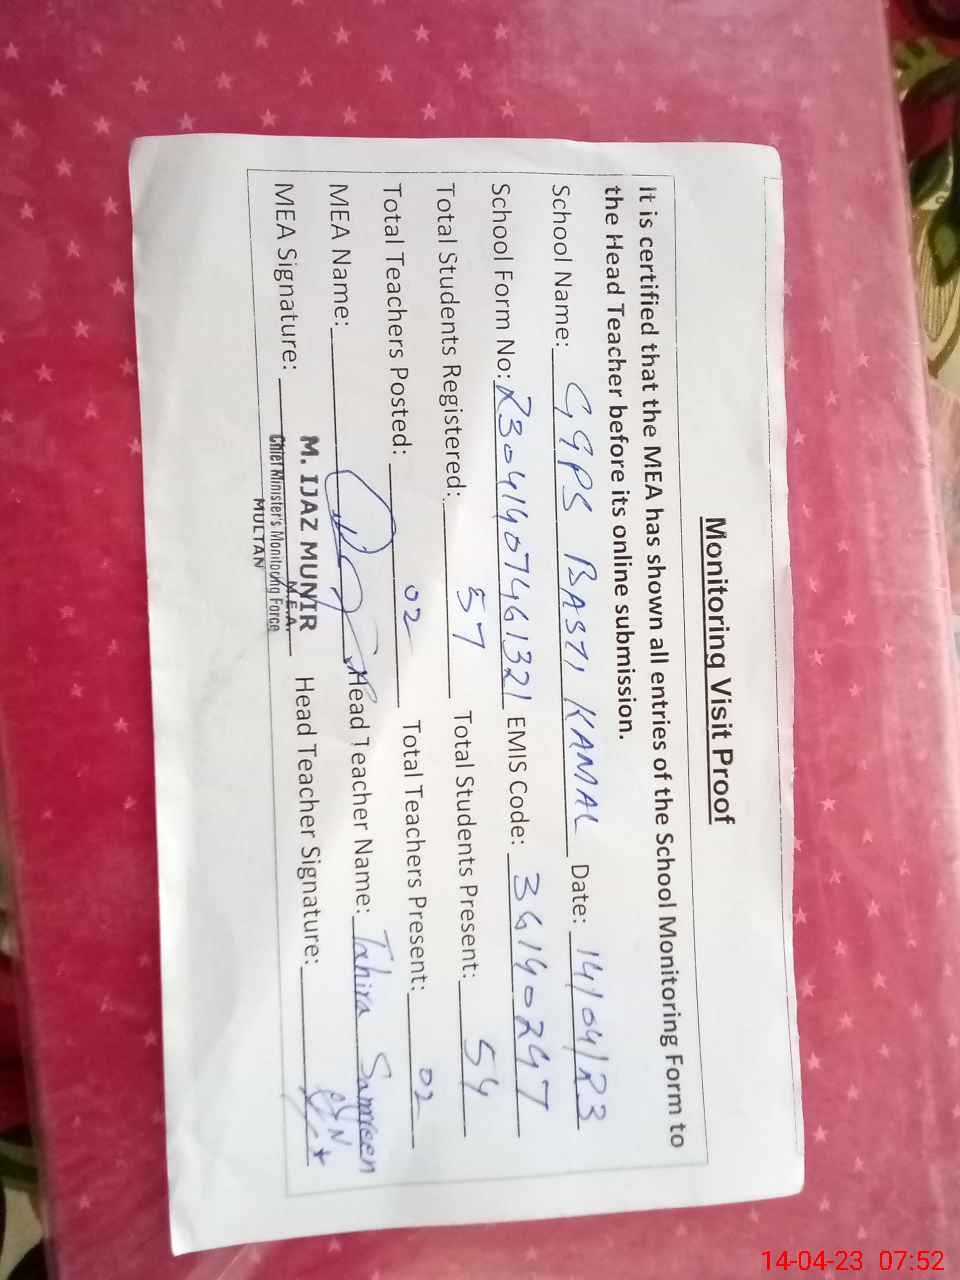 Monitoring Visit Proof
It is certified that the MEA has shown all entries of the School Monitoring Form to
the Head Teacher before its online submission.
School Name: GGPS BASTI KAMAL Date: 14/04/23
School Form No: 23041407461321 EMIS Code: 36140247
Total Students Registered: 57 Total Students Present: 54
Total Teachers Posted: 02 Total Teachers Present: 02
MEA Name: Head Teacher Name: Tahira Samreen
MEA Signature: Head Teacher Signature:
M. IJAZ MUNIR
M.E.A.
Chief Minister's Monitoring Force
MULTAN
14-04-23 07:52